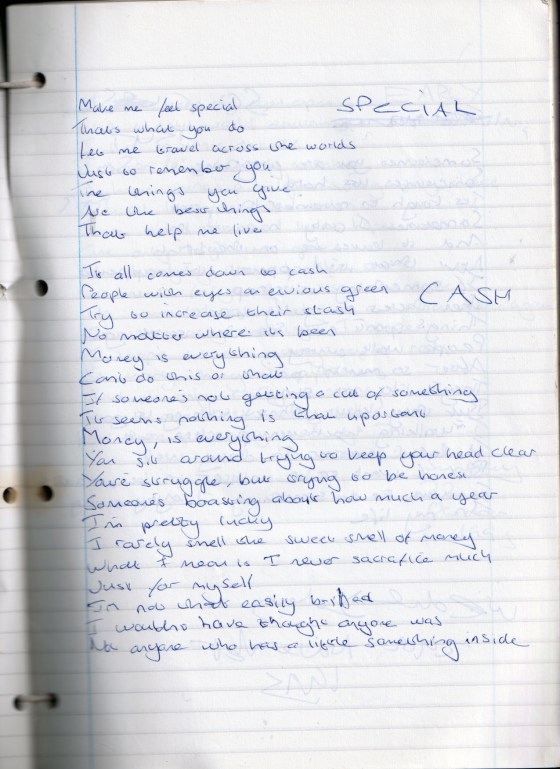 SPECIAL
Make me feel special
Thats what you do
Let me travel across the worlds
Just to remember you
The things you give
Are the best things
Thats help me live
CASH
It all comes down to cash
People with eyes an envious green
Try to increase their stash
No matter where its been
Money is everything
Cant do this or that
If someone's not getting a cut of something
It seems nothing is that important
Money, is everything
You sit around trying to keep your head clear
You're struggle, but trying to be honest
Someone's boasting about how much a year
I'm pretty lucky
I rarely smell the sweet smell of money
What I mean is I never sacrafice much
Just for myself
I'm not that easily bribed
I wouldn't have thought anyone was
Not anyone who has a little something inside